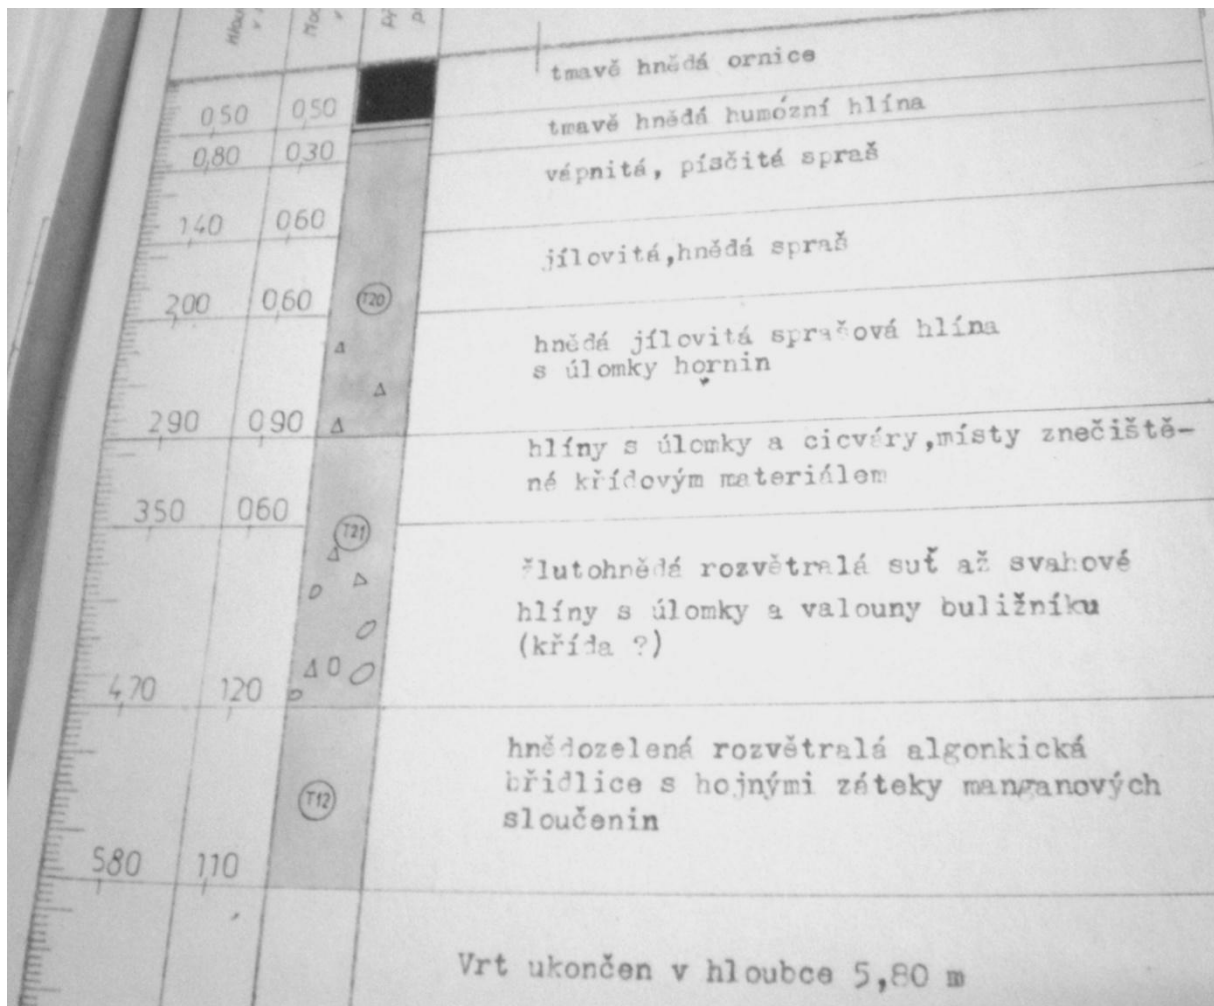 tmavě hnědá ornice
0,50 0,50
tmavě hnědá humózní hlína
0,80 0,30
vápnitá, písčitá spraš
1,40 0,60
jílovitá,hnědá spraš
2,00 0,60 T20
hnědá jílovitá sprašová hlína
s úlomky hornin
2,90 0,90
hlíny s úlomky a cicváry,místy znečiště-
né křídovým materiálem
3,50 0,60
T21
žlutohnědá rozvětralá suť až svahové
hlíny s úlomky a valouny buližníku
(křída ?)
4,70 1,20
hnědozelená rozvětralá algonkická
břidlice s hojnými záteky manganových
sloučenin
T12
5,80 1,10
Vrt ukončen v hloubce 5,80 m